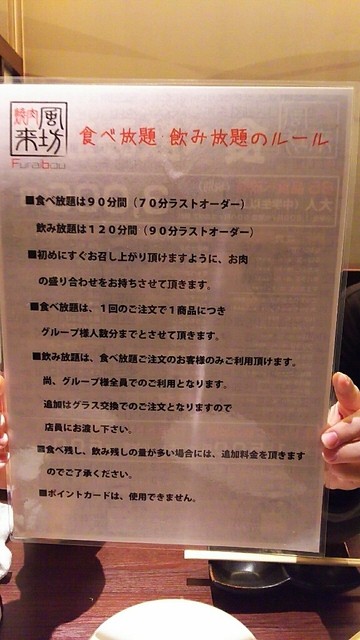 焼肉
風
来坊
Furaibou
食べ放題・飲み放題のルール
■食べ放題は90分間(70分ラストオーダー)
飲み放題は120分間(90分ラストオーダー)
■初めにすぐお召し上がり頂けますように、お肉
の盛り合わせをお持ちさせて頂きます。
■食べ放題は、1回のご注文で1商品につき
グループ様人数分までとさせて頂きます。
■飲み放題は、食べ放題ご注文のお客様のみご利用頂けます。
尚、グループ様全員でのご利用となります。
追加はグラス交換でのご注文となりますので
店員にお渡し下さい。
■食べ残し、飲み残しの量が多い場合には、追加料金を頂きます
のでご了承ください。
■ポイントカードは、使用できません。